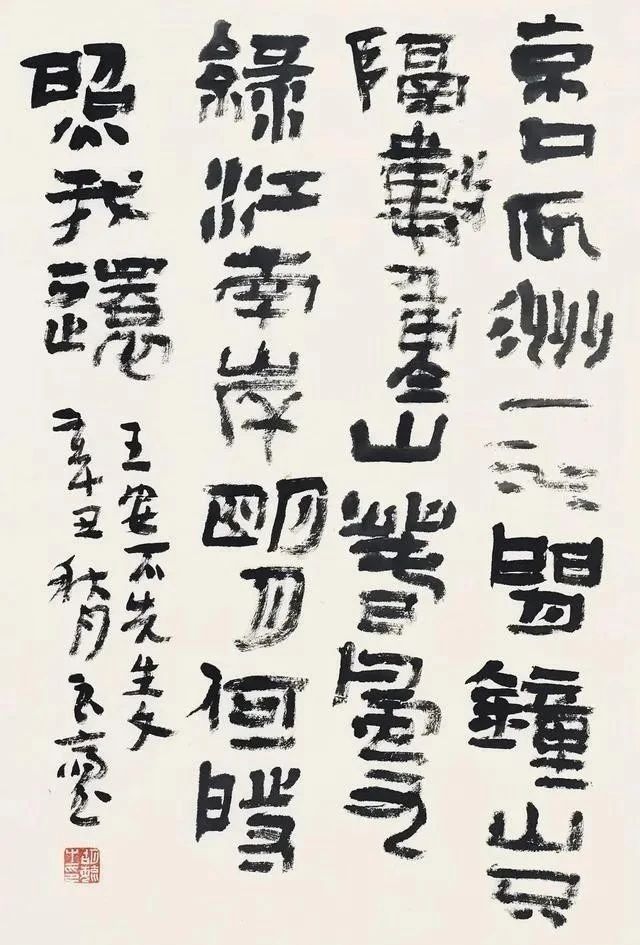 京口瓜洲一水間鐘山只
隔數重山春風又
綠江南岸明月何時
照我還
王安石先生文
辛丑秋月